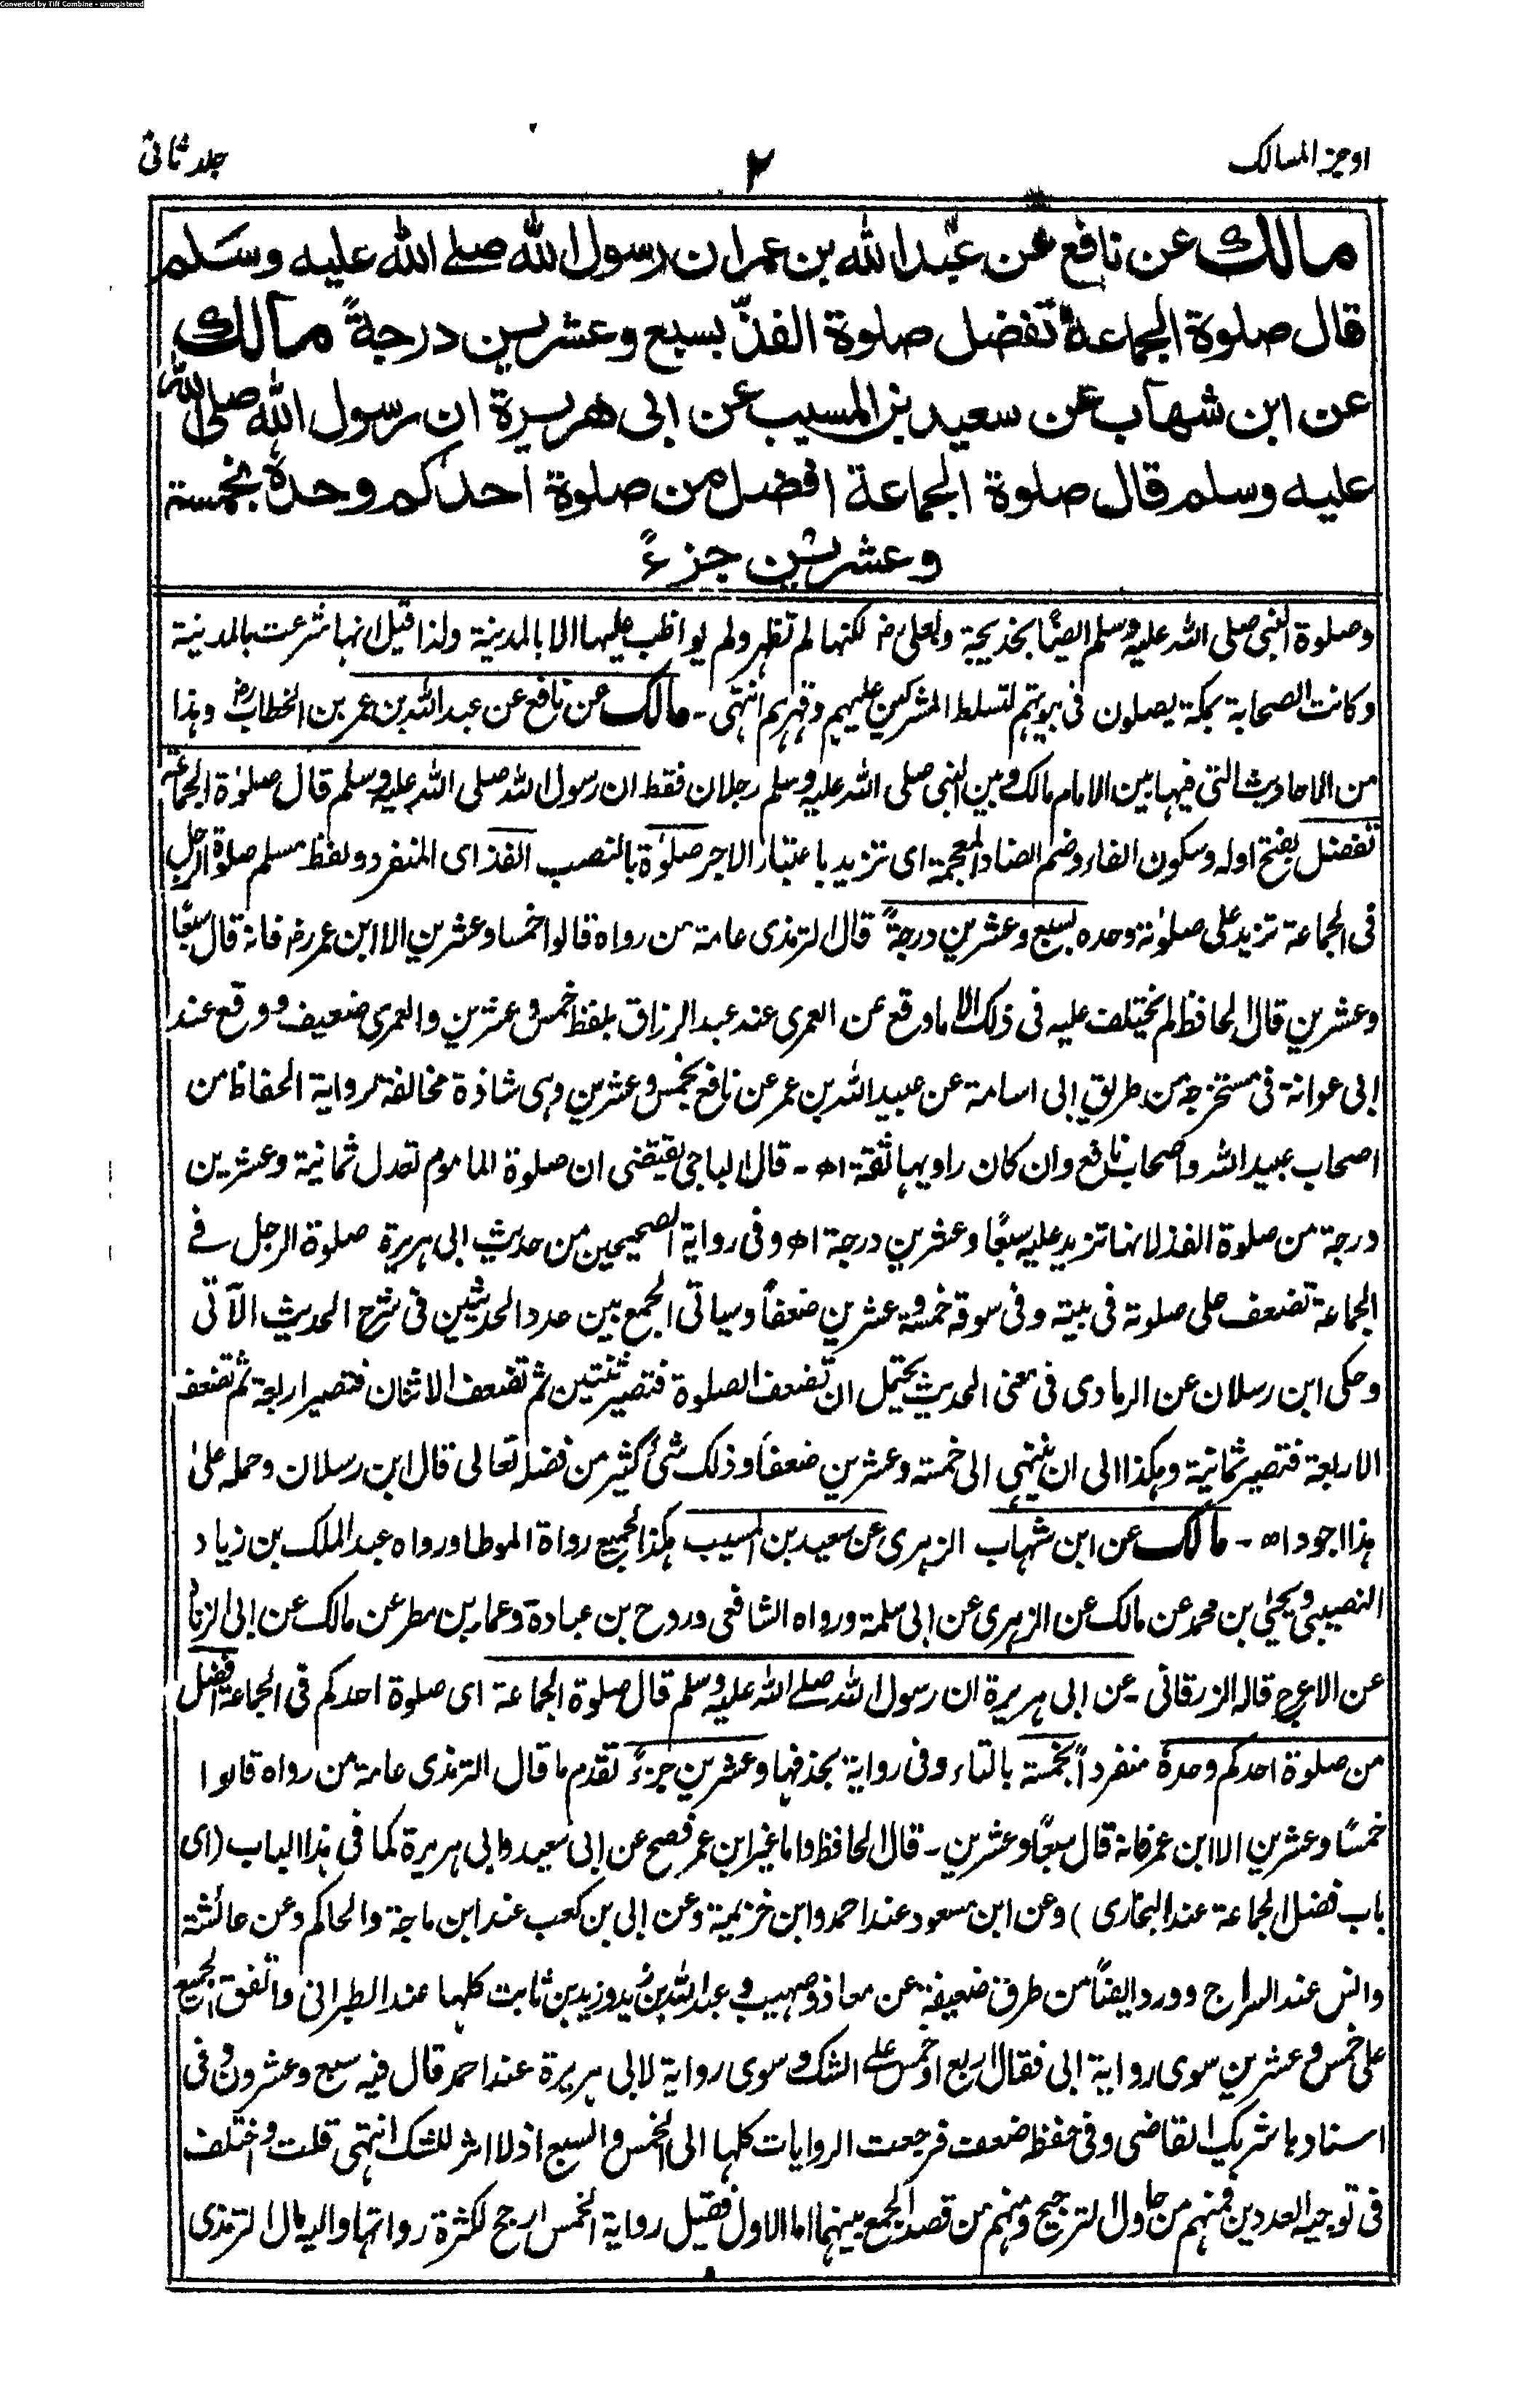 Converted by Tiff Combine - unregistered
اوجز المسالك ٢ جلد ثانی
مالك عن نافع عن عبد الله بن عمر ان رسول الله صلے الله عليه وسلم
قال صلوة الجماعة تفضل صلوة الفذّ بسبع وعشرين درجةً مالك
عن ابن شهاب عن سعيد بن المسيب عن ابى هريرة ان رسول الله صلى الله
عليه وسلم قال صلوة الجماعة افضل من صلوة احدكم وحدهٗ بخمسة
وعشرين جزءً
وصلوة النبى صلى الله عليه وسلم ايضًا بخديجة وبعلى رض لكنها لم تظهر ولم يواظب عليها الا بالمدينة ولذا قيل انها شرعت بالمدينة
وكانت الصحابة بمكة يصلون فى بيوتهم لتسلط المشركين عليهم وقهرهم انتهى - مالك عن نافع عن عبد الله بن عمر بن الخطاب رض وهذا
من الاحاديث التى فيها بين الامام مالك وبين النبى صلى الله عليه وسلم رجلان فقط ان رسول الله صلى الله عليه وسلم قال صلوٰة الجماعة
تفضل بفتح اوله وسكون الفاء وضم الضاد المعجمة اى تزيد باعتبار الاجر صلوٰة بالنصب الفذ اى المنفرد ولفظ مسلم صلوة الرجل
فى الجماعة تزيد على صلوٰته وحده بسبع وعشرين درجةً قال الترمذى عامة من رواه قالوا خمسا وعشرين الا ابن عمر رض فانه قال سبعًا
وعشرين قال الحافظ لم يختلف عليه فى ذلك الا ما وقع عن العمرى عند عبد الرزاق بلفظ خمس وعشرين والعمرى ضعيف ووقع عند
ابى عوانة فى مستخرجه من طريق ابى اسامة عن عبيد الله بن عمر عن نافع بخمس وعشرين وهى شاذة مخالفة لرواية الحفاظ من
اصحاب عبيد الله واصحاب نافع وان كان راويها ثقة اھ - قال الباجى يقتضى ان صلوة الماموم تعدل ثمانية وعشرين
درجة من صلوة الفذ لانها تزيد عليه سبعًا وعشرين درجة اھ وفى رواية الصحيحين من حديث ابى هريرة صلوة الرجل فے
الجماعة تضعف على صلوته فى بيته وفى سوقه خمسة وعشرين ضعفاً وسياتى الجمع بين عدد الحديثين فى شرح الحديث الآتى
وحكى ابن رسلان عن الرمادى فى معنى الحديث يحتمل ان تضعف الصلوة فتصير ثنتين ثم تضعف الاثنان فتصير اربعة ثم تضعف
الاربعة فتصير ثمانية وهكذا الى ان ينتهى الى خمسة وعشرين ضعفاً وذلك شئ كثير من فضله تعالى قال ابن رسلان وحمله علىٰ
هذا اجود اھ - مالك عن ابن شهاب الزهرى عن سعيد بن المسيب هكذا لجميع رواة الموطا ورواه عبد الملك بن زياد
النصيبى ويحيىٰ بن محمد عن مالك عن الزهرى عن ابى سلمة ورواه الشافعى وروح بن عبادة وعمار بن مطر عن مالك عن ابى الزناد
عن الاعرج قاله الزرقانى - عن ابى هريرة ان رسول الله صلے الله عليه وسلم قال صلوة الجماعة اى صلوة احدكم فى الجماعة افضل
من صلوة احدكم وحدهٗ منفرداً بخمسة بالتاء وفى رواية بحذفها وعشرين جزءً تقدم ما قال الترمذى عامة من رواه قالوا
خمسًا وعشرين الا ابن عمر فانه قال سبعًا وعشرين - قال الحافظ واما غير ابن عمر فصح عن ابى سعيد وابى هريرة كما فى هذا الباب (اى
باب فضل الجماعة عند البخارى) وعن ابن مسعود عند احمد وابن خزيمة وعن ابى بن كعب عند ابن ماجة والحاكم وعن عائشة
وانس عند السراج وورد ايضاً من طرق ضعيفة عن معاذ وصهيب وعبد الله بن زيد وزيد بن ثابت كلها عند الطبرانى واتفق الجميع
على خمس وعشرين سوى رواية ابى فقال اربع او خمس علے الشك وسوى رواية لابى هريرة عند احمد قال فيه سبع وعشرون وفى
اسنادها شريك القاضى وفى حفظه ضعف فرجعت الروايات كلها الى الخمس والسبع اذ لا اثر للشك انتهى قلت واختلف
فى توجيه العددين فمنهم من حاول الترجيح ومنهم من قصد الجمع بينهما اما الاول فقيل رواية الخمس ارجح لكثرة رواتها واليه مال الترمذى